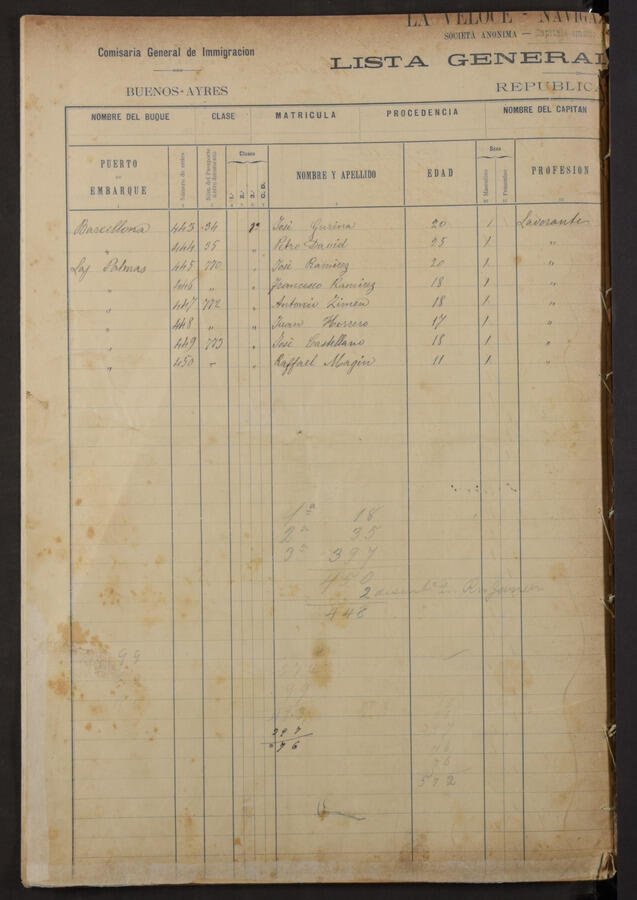 LA VELOCE - NAVIGA
SOCIETÀ ANONIMA —
Comisaria General de Immigracion
LISTA GENERAL
BUENOS-AYRES
REPUBLICA
NOMBRE DEL BUQUE CLASE MATRICULA PROCEDENCIA NOMBRE DEL CAPITAN
PUERTO DE EMBARQUE Número de orden Clases 1.ª 2.ª 3.ª C. D. NOMBRE Y APELLIDO EDAD Sexo Masculino Femenino PROFESION
Barcellona 443 34 3ª José 20 1 Lavorante
" 444 35 " Petro David 25 1 "
Las Palmas 445 770 " José Ramirez 20 1 "
" 446 " " Francesco Ramirez 18 1 "
" 447 772 " Antonio 18 1 "
" 448 " " Juan Herrero 17 1 "
" 449 773 " José Castellano 18 1 "
" 450 " " Raffael Magin 11 1 "
1ª 18
2ª 35
3ª 397
450
2
448
99
297
576
572